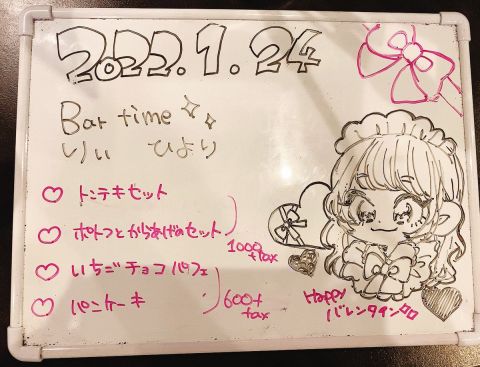 2022.1.24
Bar time
りぃ ひより
トンテキセット
ポトフとからあげのセット
1000+tax
いちごチョコパフェ
パンケーキ
600+tax
Happy
バレンタイン